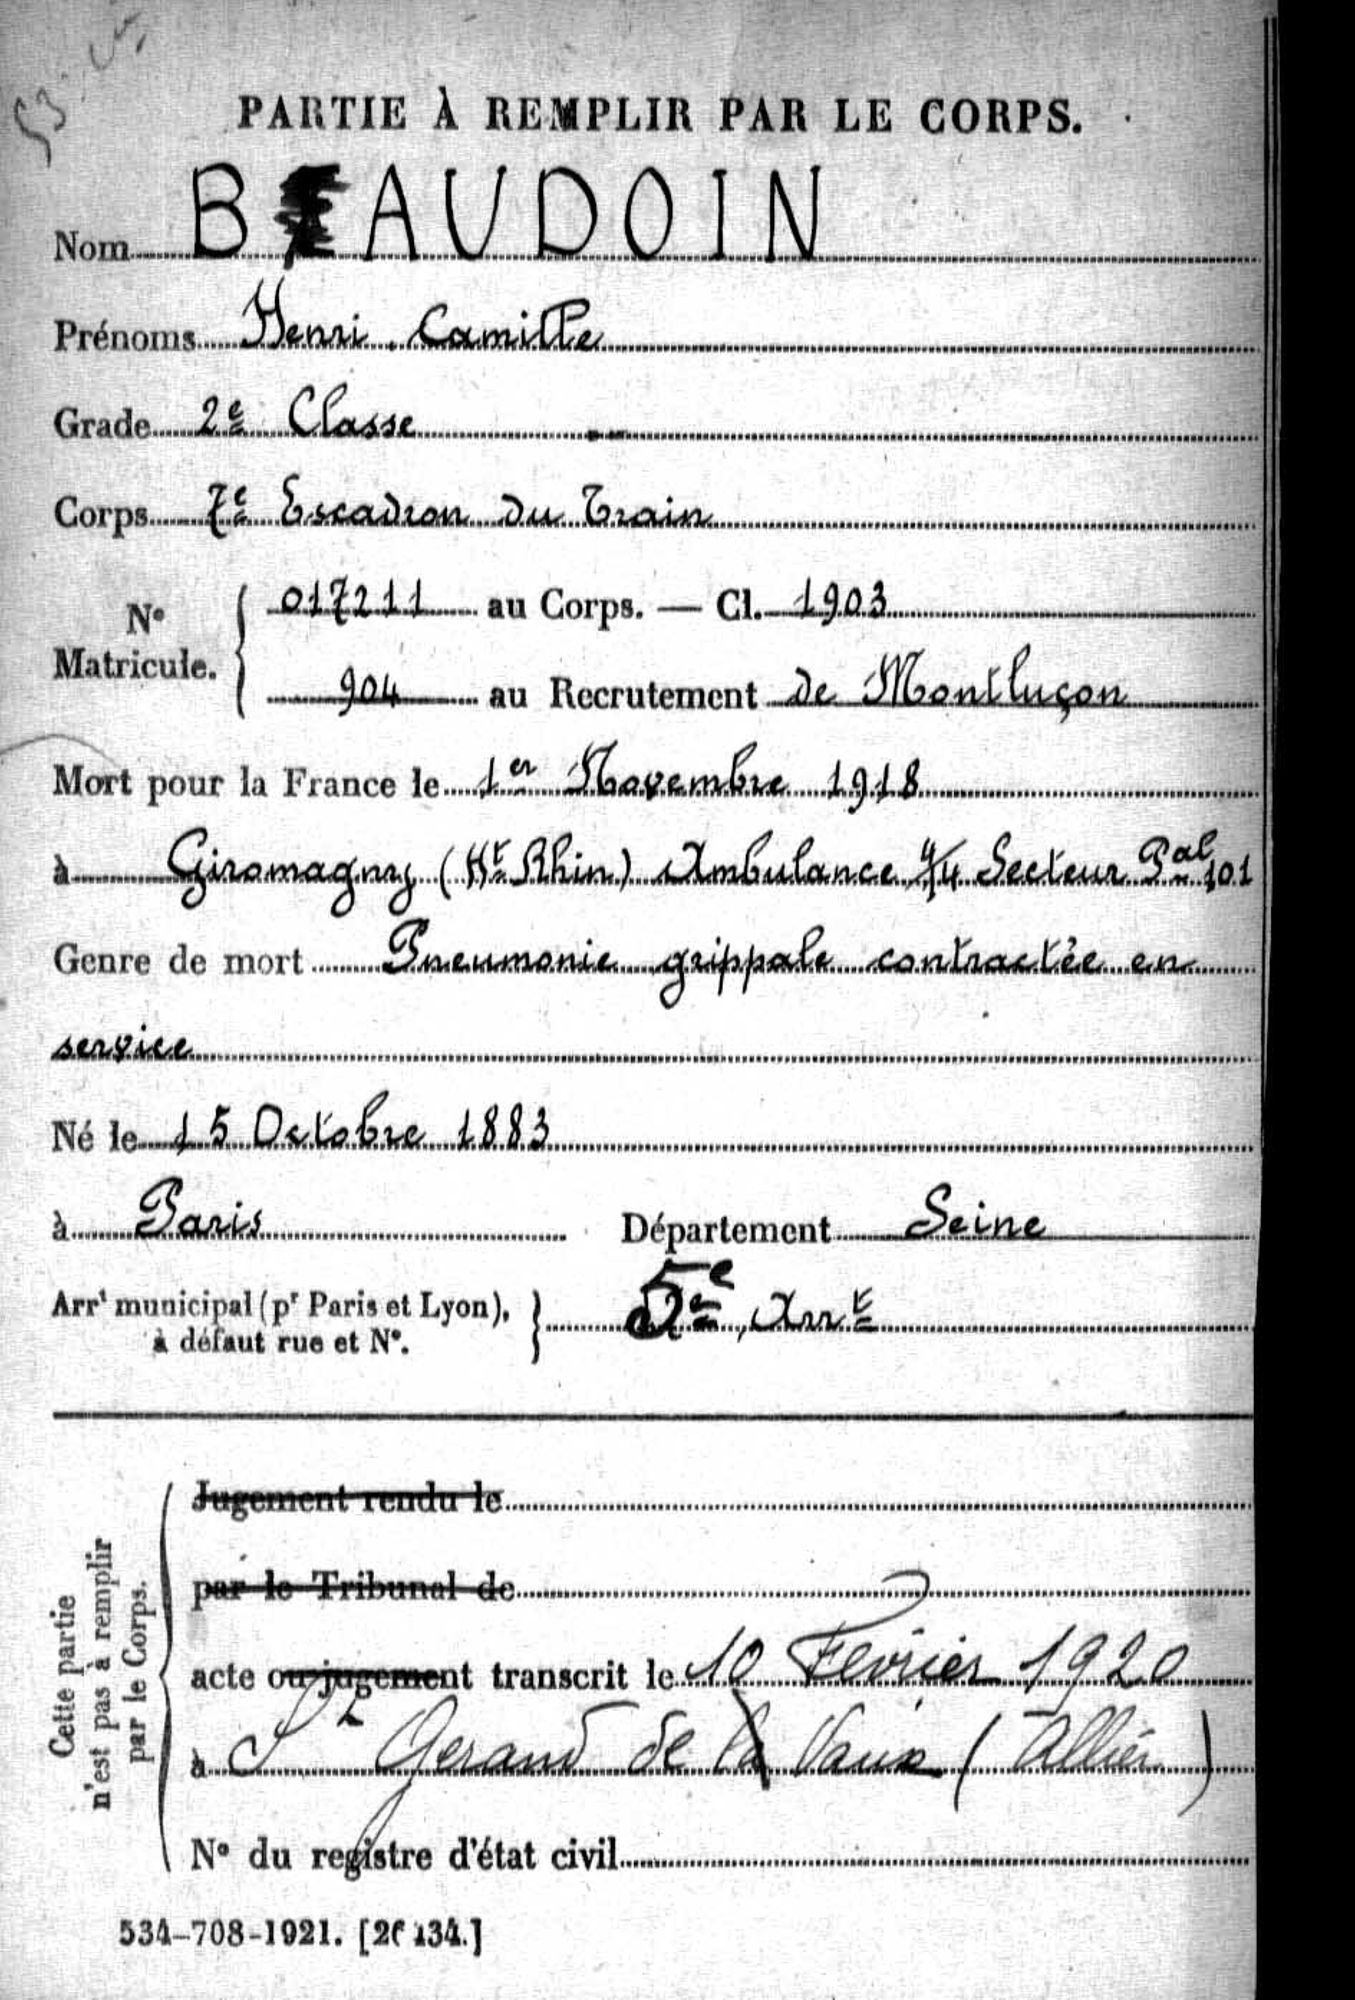 PARTIE À REMPLIR PAR LE CORPS.
Nom BEAUDOIN
Prénoms Henri Camille
Grade 2e Classe
Corps 7e Escadron du Train
No Matricule. { 017211 au Corps. — Cl. 1903
904 au Recrutement de Montluçon
Mort pour la France le 1er Novembre 1918
à Giromagny (Ht Rhin) Ambulance 4/4 Secteur Pal 101
Genre de mort Pneumonie grippale contractée en
service
Né le 15 Octobre 1883
à Paris Département Seine
Arrt municipal (pr Paris et Lyon), à défaut rue et No. } 5e Arrt
Cette partie n'est pas à remplir par le Corps.
Jugement rendu le
par le Tribunal de
acte ou jugement transcrit le 10 Fevrier 1920
à St Gerand de Vaux (Allier)
No du registre d'état civil
534-708-1921. [26134.]